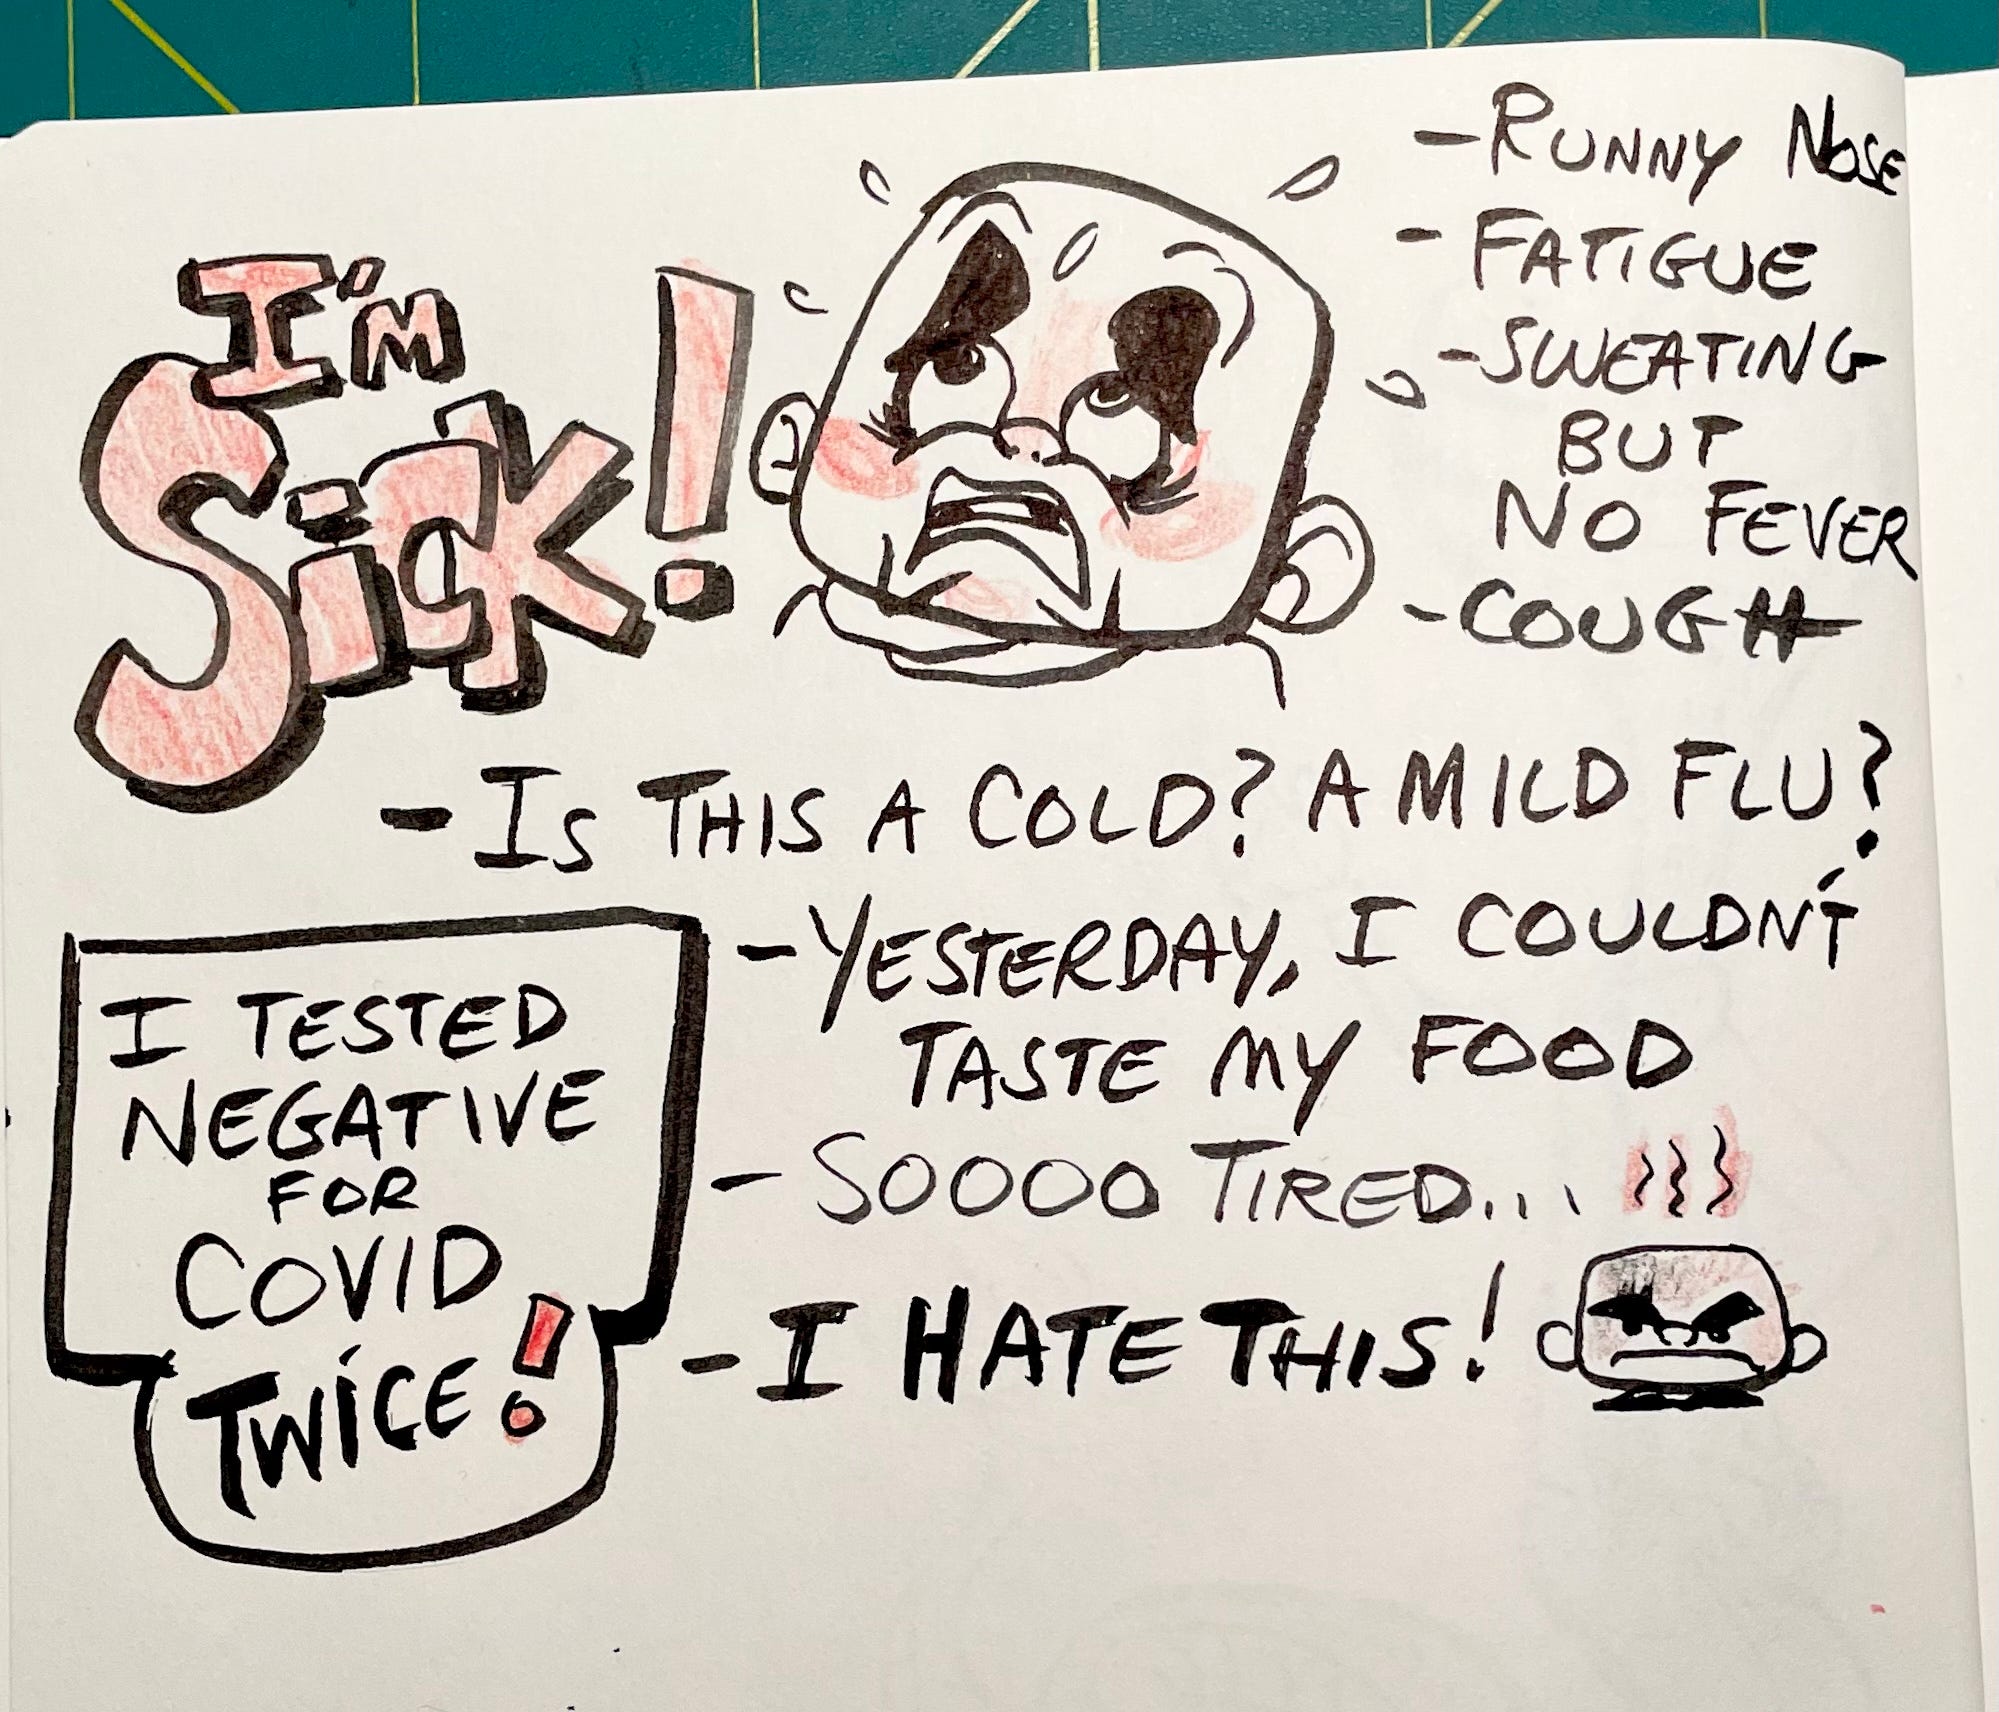 I'm
Sick!
-Runny Nose
- Fatigue
-Sweating
But
No Fever
-Cough
-Is This A Cold? A Mild Flu?
-Yesterday, I Couldn't
Taste My Food
-Soooo Tired...
-I Hate This!
I Tested
Negative
For
Covid
Twice!